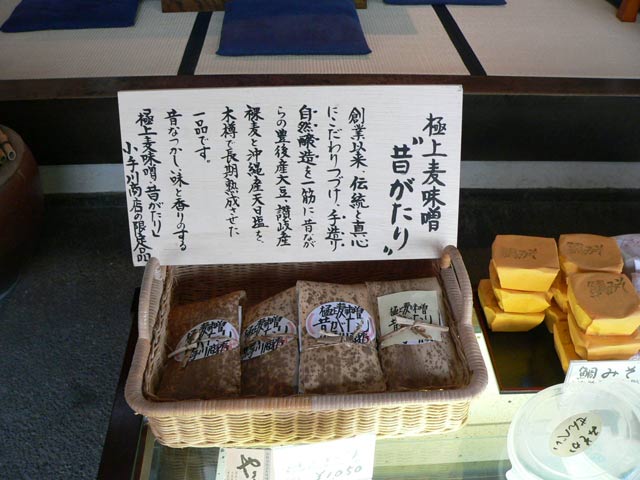 極上麦味噌
"昔がたり"
創業以来、伝統と真心
にこだわりつづけ、手造り
自然醸造を一筋に昔なが
らの豊後産大豆、讃岐産
裸麦と沖縄産天日塩を、
木樽で長期熟成させた
一品です。
昔なつかしい味と香りのする
極上麦味噌・昔がたりは
小手川商店の限定品
極上麦味噌
昔がたり
鯛みそ
¥1050